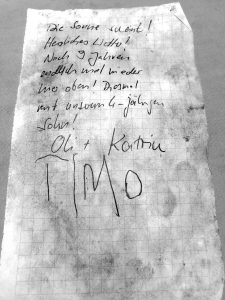 Die Sonne scheint!
Herrliches Licht!
Nach 9 Jahren
endlich mal wieder
hier oben! Diesmal
mit unserem 4-jährigen
Sohn!
Oli + Katrin
TIMO